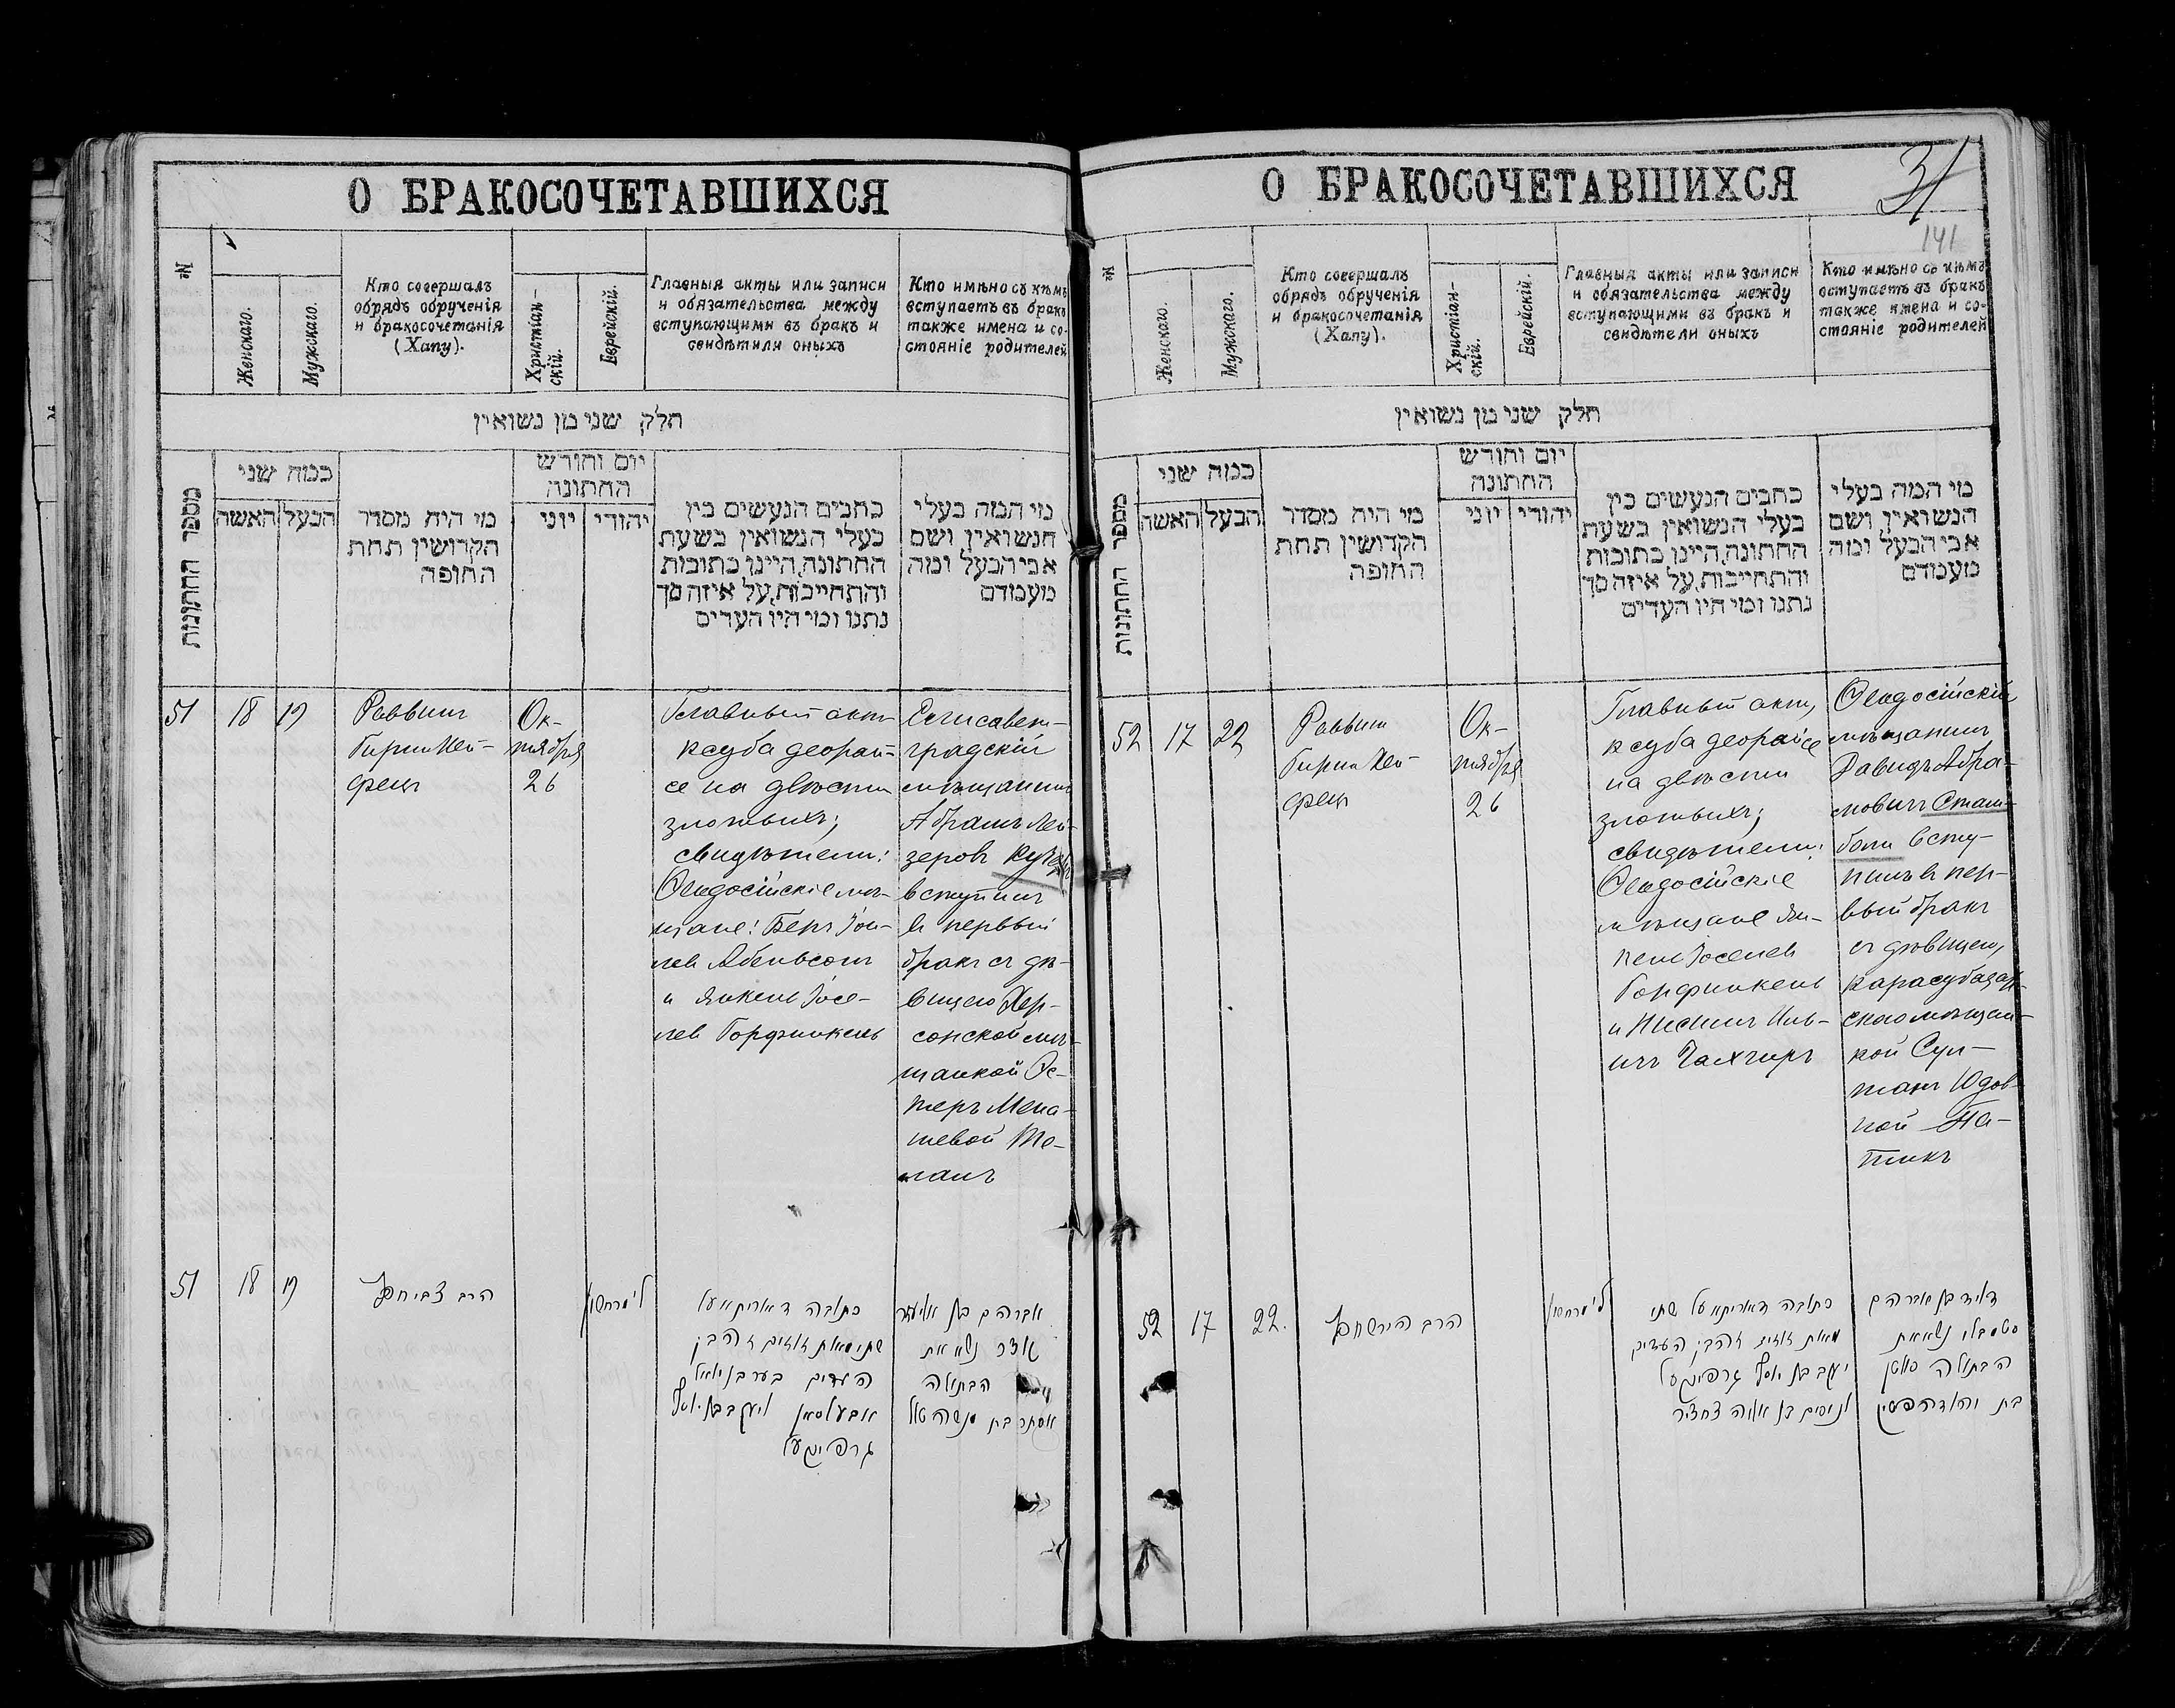 О БРАКОСОЧЕТАВШИХСЯ
№
Женскаго.
Мужскаго.
Кто совершалъ
обрядъ обрученія
и бракосочетанія
(Хапу).
Христіан-
скій.
Еврейскій.
Главныя акты или записи
и обязательства между
вступающими въ бракъ и
свидѣтили оныхъ
Кто имѣно съ кѣмъ
вступаетъ въ бракъ
также имена и со-
стояніе родителей
חלק שני מן נשואין
מספר החתונות
כמה שני
האשה
הבעל
מי היה מסדר
הקדושין תחת
החופה
יום וחודש
החתונה
יוני
יהודי
כתבים הנעשים בין
בעלי הנשואין בשעת
החתונה, היינו כתובות
והתחייבות, על איזה סך
נתנו ומי היו העדים
מי המה בעלי
הנשואין ושם
אבי הבעל ומה
מעמדם
51
18
19
Раввинъ
Гирш Хей-
фецъ
Ок-
тября
26
Главный актъ
ксуба деорай-
се на двѣсти
злотыхъ;
свидѣтели:
Ѳеодосійскіе мѣ-
щане: Беръ Іои-
лев Абельсонъ
и Янкель Іосе-
лев Горфинкель
Елисавет-
градскій
мѣщанинъ
Абрамъ Лей-
зеровъ
вступилъ
въ первый
бракъ съ дѣ-
вицею Хер-
сонской мѣ-
щанкой Эс-
теръ Мена-
шевой
51
18
19
הרב צבי חפץ
ל' מרחשון
כתובה דאוריתא על
שתי מאות זוזים זהבן
העדים בער בן יואל
אבעלסאן ויעקב בן יוסף
גרפינקעל
אברהם בן אליעזר
נשא את
הבתולה
אסתר בת מנשה
О БРАКОСОЧЕТАВШИХСЯ
31
141
№
Женскаго.
Мужскаго.
Кто совершалъ
обрядъ обрученія
и бракосочетанія
(Хапу).
Христіан-
скій.
Еврейскій.
Главныя акты или записи
и обязательства между
вступающими въ бракъ и
свидѣтели оныхъ
Кто имѣно съ кѣмъ
вступаетъ въ бракъ
также имена и со-
стояніе родителей
חלק שני מן נשואין
מספר החתונות
כמה שני
האשה
הבעל
מי היה מסדר
הקדושין תחת
החופה
יום וחודש
החתונה
יוני
יהודי
כתבים הנעשים בין
בעלי הנשואין בשעת
החתונה, היינו כתובות
והתחייבות, על איזה סך
נתנו ומי היו העדים
מי המה בעלי
הנשואין ושם
אבי הבעל ומה
מעמדם
52
17
22
Раввин
Гирш Хей-
фецъ
Ок-
тября
26
Главный актъ,
ксуба деорайсе
на двѣсти
злотыхъ;
свидѣтели:
Ѳеодосійскіе
мѣщане Ян-
кель Іоселев
Горфинкель
и Нисимъ Иль-
ичъ
Ѳеодосійскій
мѣщанинъ
Давидъ Абра-
мовичъ Стам-
боли всту-
пилъ въ пер-
вый бракъ
съ дѣвицею,
Карасубазар-
скою мѣщан-
кой Сул-
танъ Юдов-
ной
52
17
22.
הרב הירש חפץ
ל' מרחשון
כתובה דאוריתא על שתי
מאות זוזים זהבן העדים
יעקב בן יוסף גרפינקעל
ונסים בן אליה
דויד בן אברהם
סטמבולי נשא את
הבתולה סולטן
בת יהודה